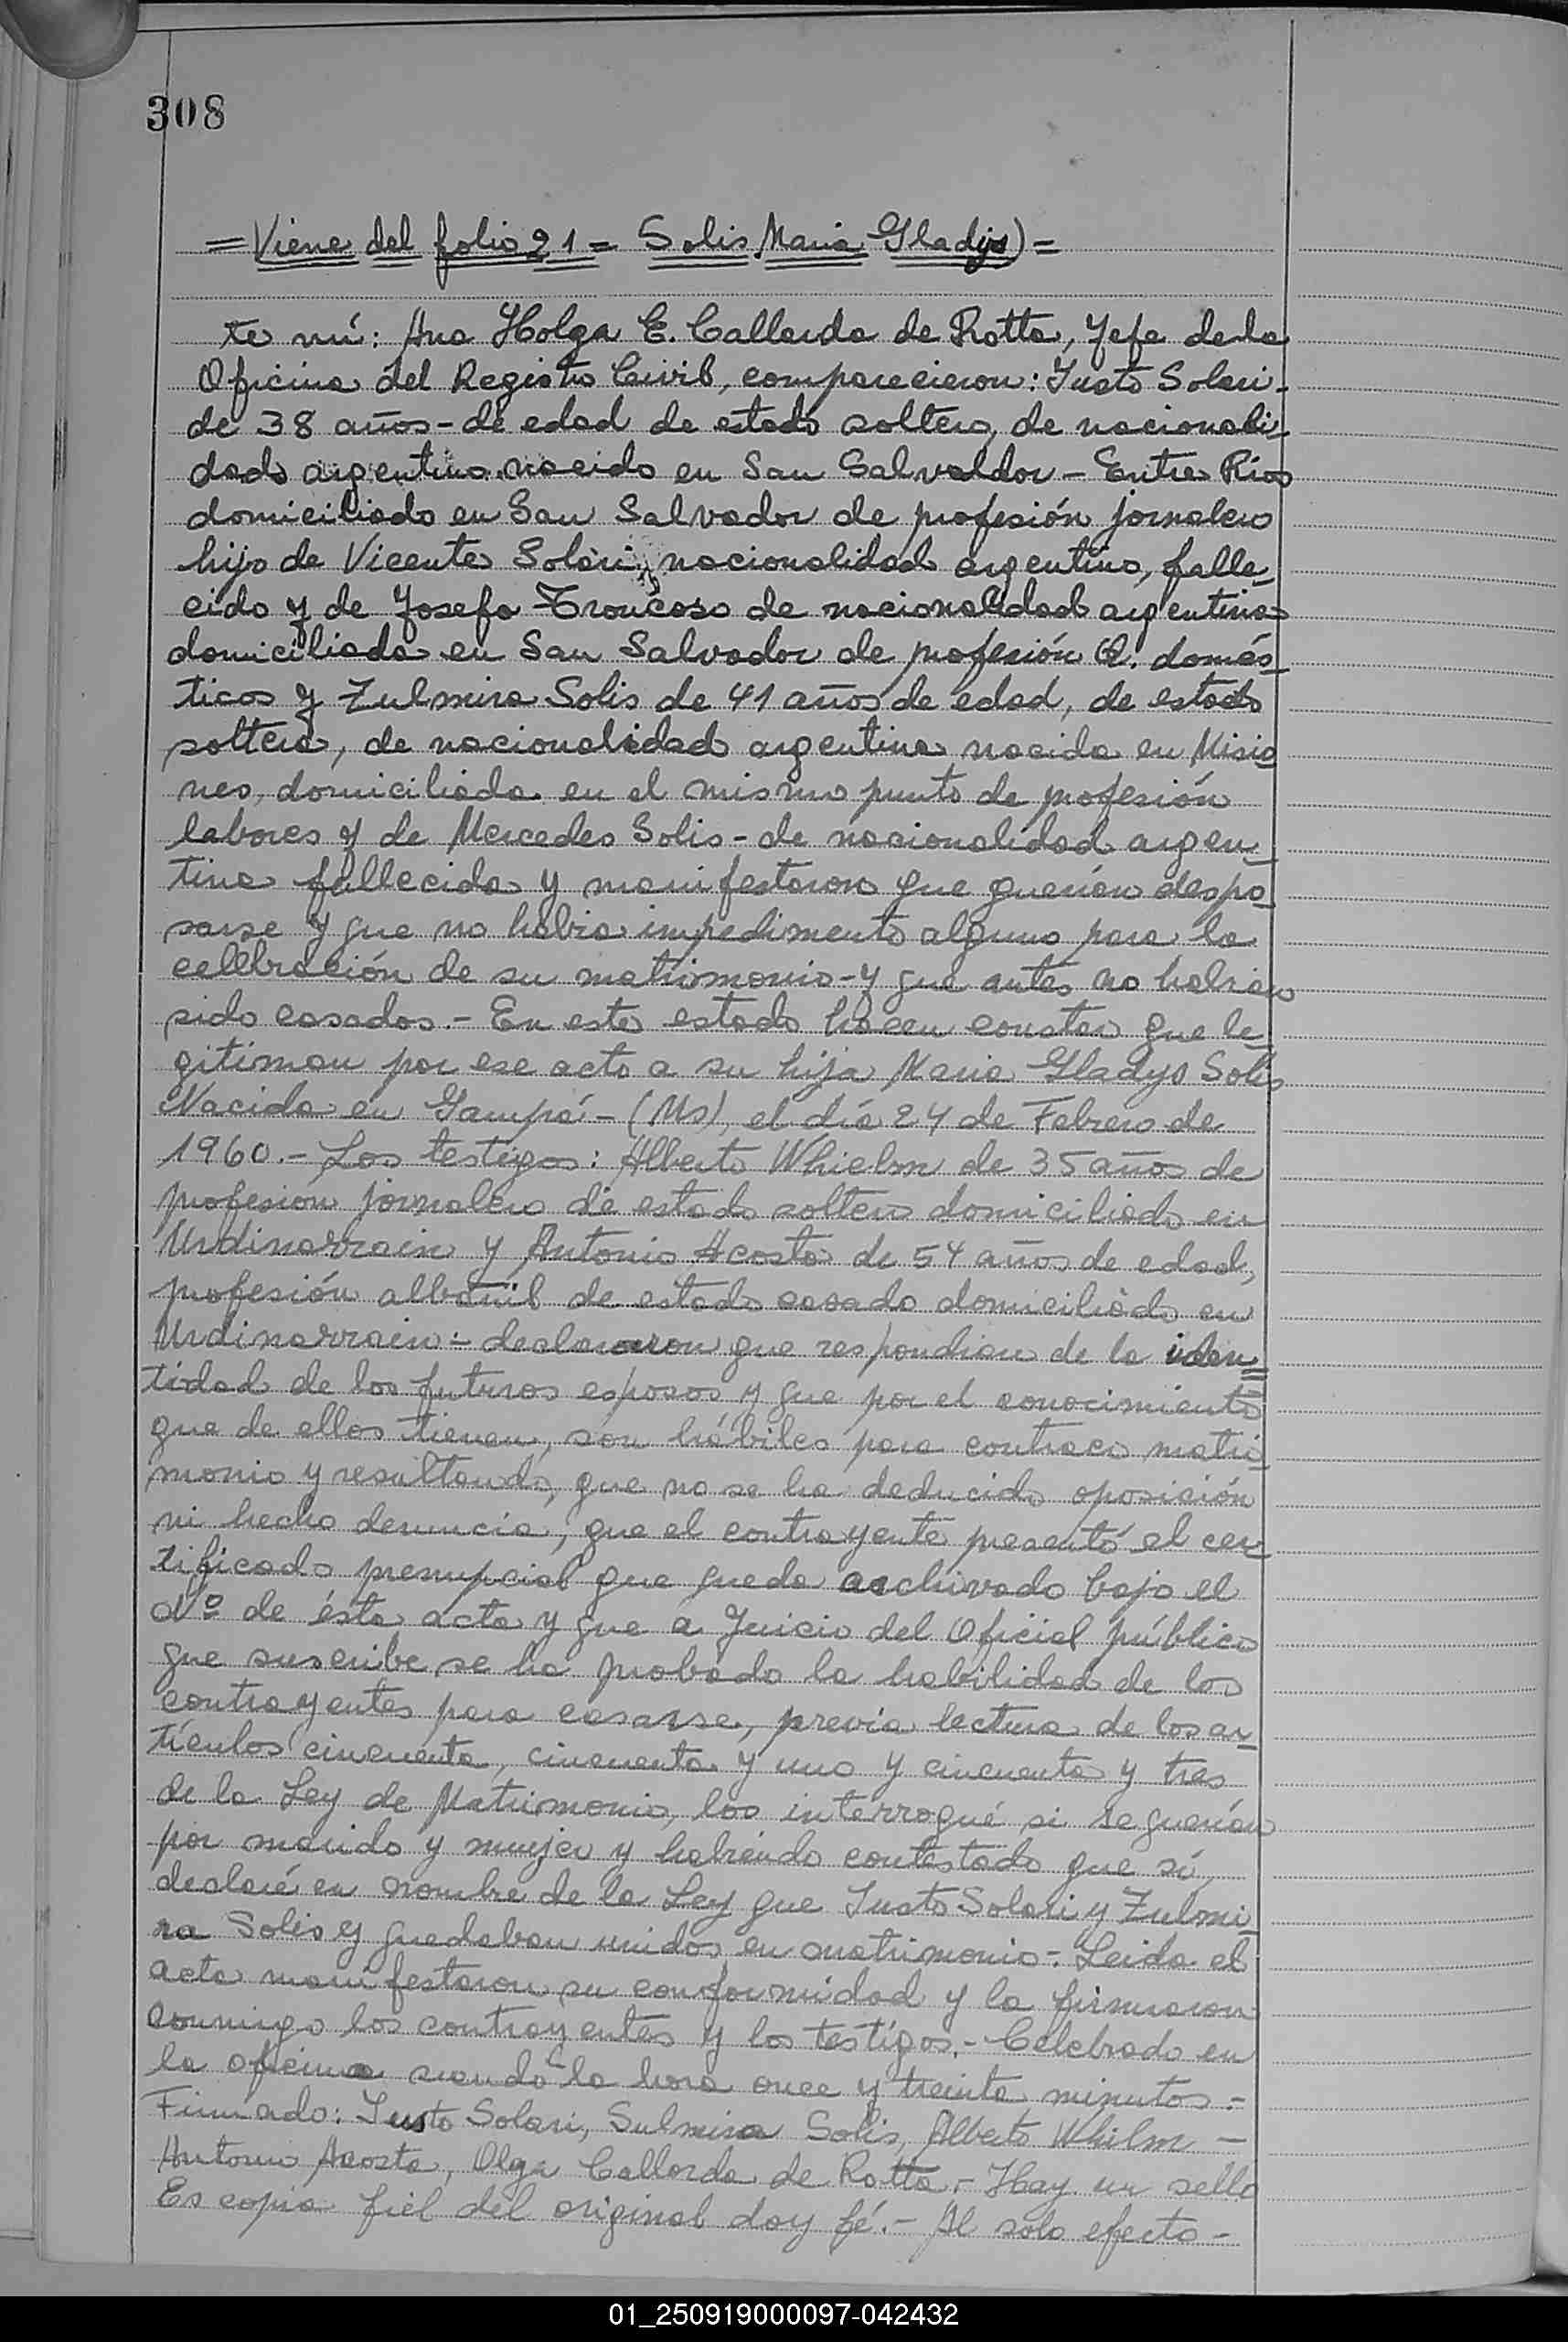 308
= Viene del folio 21 = Solis Maria Gladys) =
te mí: Ana Holga E. Callarda de Rotta, Jefa de la
Oficina del Registro Civil, comparecieron: Justo Solari-
de 38 años - de edad de estado soltero, de nacionali-
dad argentino nacido en San Salvador - Entre Rios
domiciliado en San Salvador de profesión jornalero
hijo de Vicente Solari, nacionalidad argentino, falle-
cido y de Josefa Troncoso de nacionalidad argentina
domiciliada en San Salvador de profesión Q. domés-
ticos y Zulmira Solis de 41 años de edad, de estado
soltera, de nacionalidad argentina nacida en Misio
nes, domiciliada en el mismo punto de profesión
labores y de Mercedes Solis - de nacionalidad argen-
tina fallecida y manifestaron que querían despo-
sarse y que no habia impedimento alguno para la
celebración de su matrimonio - y que antes no habian
sido casados.- En este estado hacen constar que le-
gitiman por ese acto a su hija Maria Gladys Solis
Nacida en Garupá - (Ms), el día 24 de Febrero de
1960.- Los testigos: Alberto Whielm de 35 años de
profesion jornalero de estado soltero domiciliado en
Urdinarrain y Antonio Acosta de 54 años de edad,
profesión albañil de estado casado domiciliado en
Urdinarrain - declararon que respondian de la iden=
tidad de los futuros esposos y que por el conocimiento
que de ellos tienen, son hábiles para contraer matri-
monio y resultando, que no se ha deducido oposición
ni hecho denuncia, que el contrayente presentó el cer-
tificado prenupcial que queda archivado bajo el
Nº de ésta acta y que a Juicio del Oficial público
que suscribe se ha probado la habilidad de los
contrayentes para casarse, previa lectura de los ar-
tículos cincuenta, cincuenta y uno y cincuenta y tres
de la Ley de Matrimonio, los interrogué si se querían
por marido y mujer y habiendo contestado que sí,
declaré en nombre de la Ley que Justo Solari y Zulmi-
ra Solis y quedaban unidos en matrimonio.- Leida el
acta manifestaron su conformidad y la firmaron
conmigo los contrayentes y los testigos.- Celebrado en
la oficina siendo la hora once y treinta minutos.-
Firmado: Justo Solari, Sulmira Solis, Alberto Whilm -
Antonio Acosta, Olga Callorda de Rotta.- Hay un sello
Es copia fiel del original doy fé.- Al solo efecto -
01_250919000097-042432